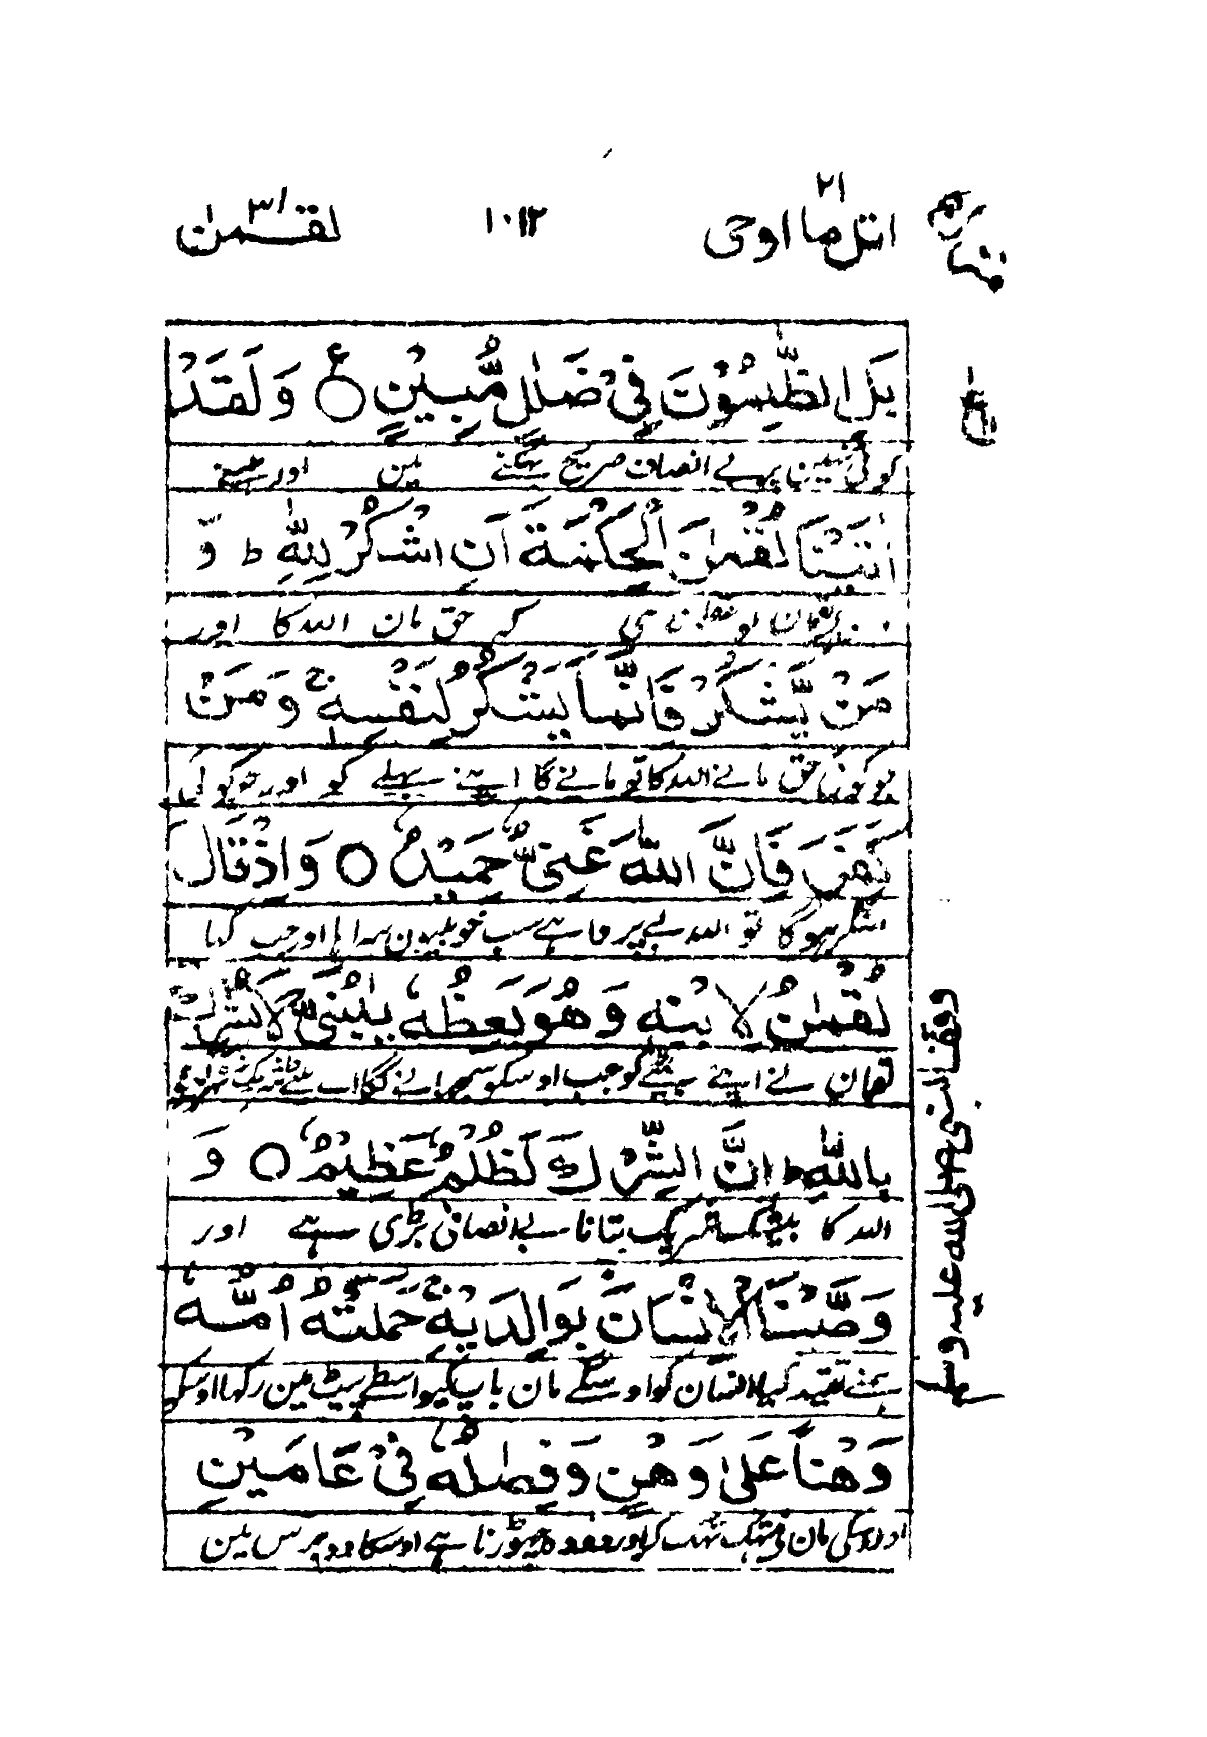 اتل ما اوحی ۲۱
۱۰۱۲
لقمٰن ۳۱
بَلِ الظّٰلِمُوْنَ فِیْ ضَلٰلٍ مُّبِیْنٍ ○ ع وَلَقَدْ
کوئی نہیں پر بے انصاف صریح بہکتے ہین اور ہمنے
اٰتَیْنَا لُقْمٰنَ الْحِکْمَةَ اَنِ اشْکُرْ لِلّٰهِ ط وَ
لقمان کہ حق مان اللہ کا اور
مَنْ یَّشْکُرْ فَاِنَّمَا یَشْکُرُ لِنَفْسِهٖ ج وَمَنْ
جو کوئی حق مانے اللہ کا تو مانے گا اپنے بہلے کو اور جو کوئی
کَفَرَ فَاِنَّ اللّٰهَ غَنِیٌّ حَمِیْدٌ ○ وَاِذْ قَالَ
منکر ہوگا تو اللہ بے پروا ہے سب خوبیون سراہا اور جب کہا
لُقْمٰنُ لِابْنِهٖ وَهُوَ یَعِظُهٗ یٰبُنَیَّ لَا تُشْرِكْ
لقمان نے اپنے بیٹے کو جب اوسکو سمجہانے لگا اے بیٹے شریک نہ
بِاللّٰهِ ط اِنَّ الشِّرْكَ لَظُلْمٌ عَظِیْمٌ ○ وَ
اللہ کا بیشک شریک بتانا بے انصافی بڑی ہے اور
وَصَّیْنَا الْاِنْسَانَ بِوَالِدَیْهِ ج حَمَلَتْهُ اُمُّهٗ
ہمنے تقید کیا انسان کو اوسکے مان باپ کیواسطے پیٹ مین رکہا اوسکو
وَهْنًا عَلٰی وَهْنٍ وَّفِصٰلُهٗ فِیْ عَامَیْنِ
اوسکی مان نے تہک تہک کر اور دودہ چہوڑنا ہے اوسکا دو برس مین
وقف النبی صلی الله علیه وسلم